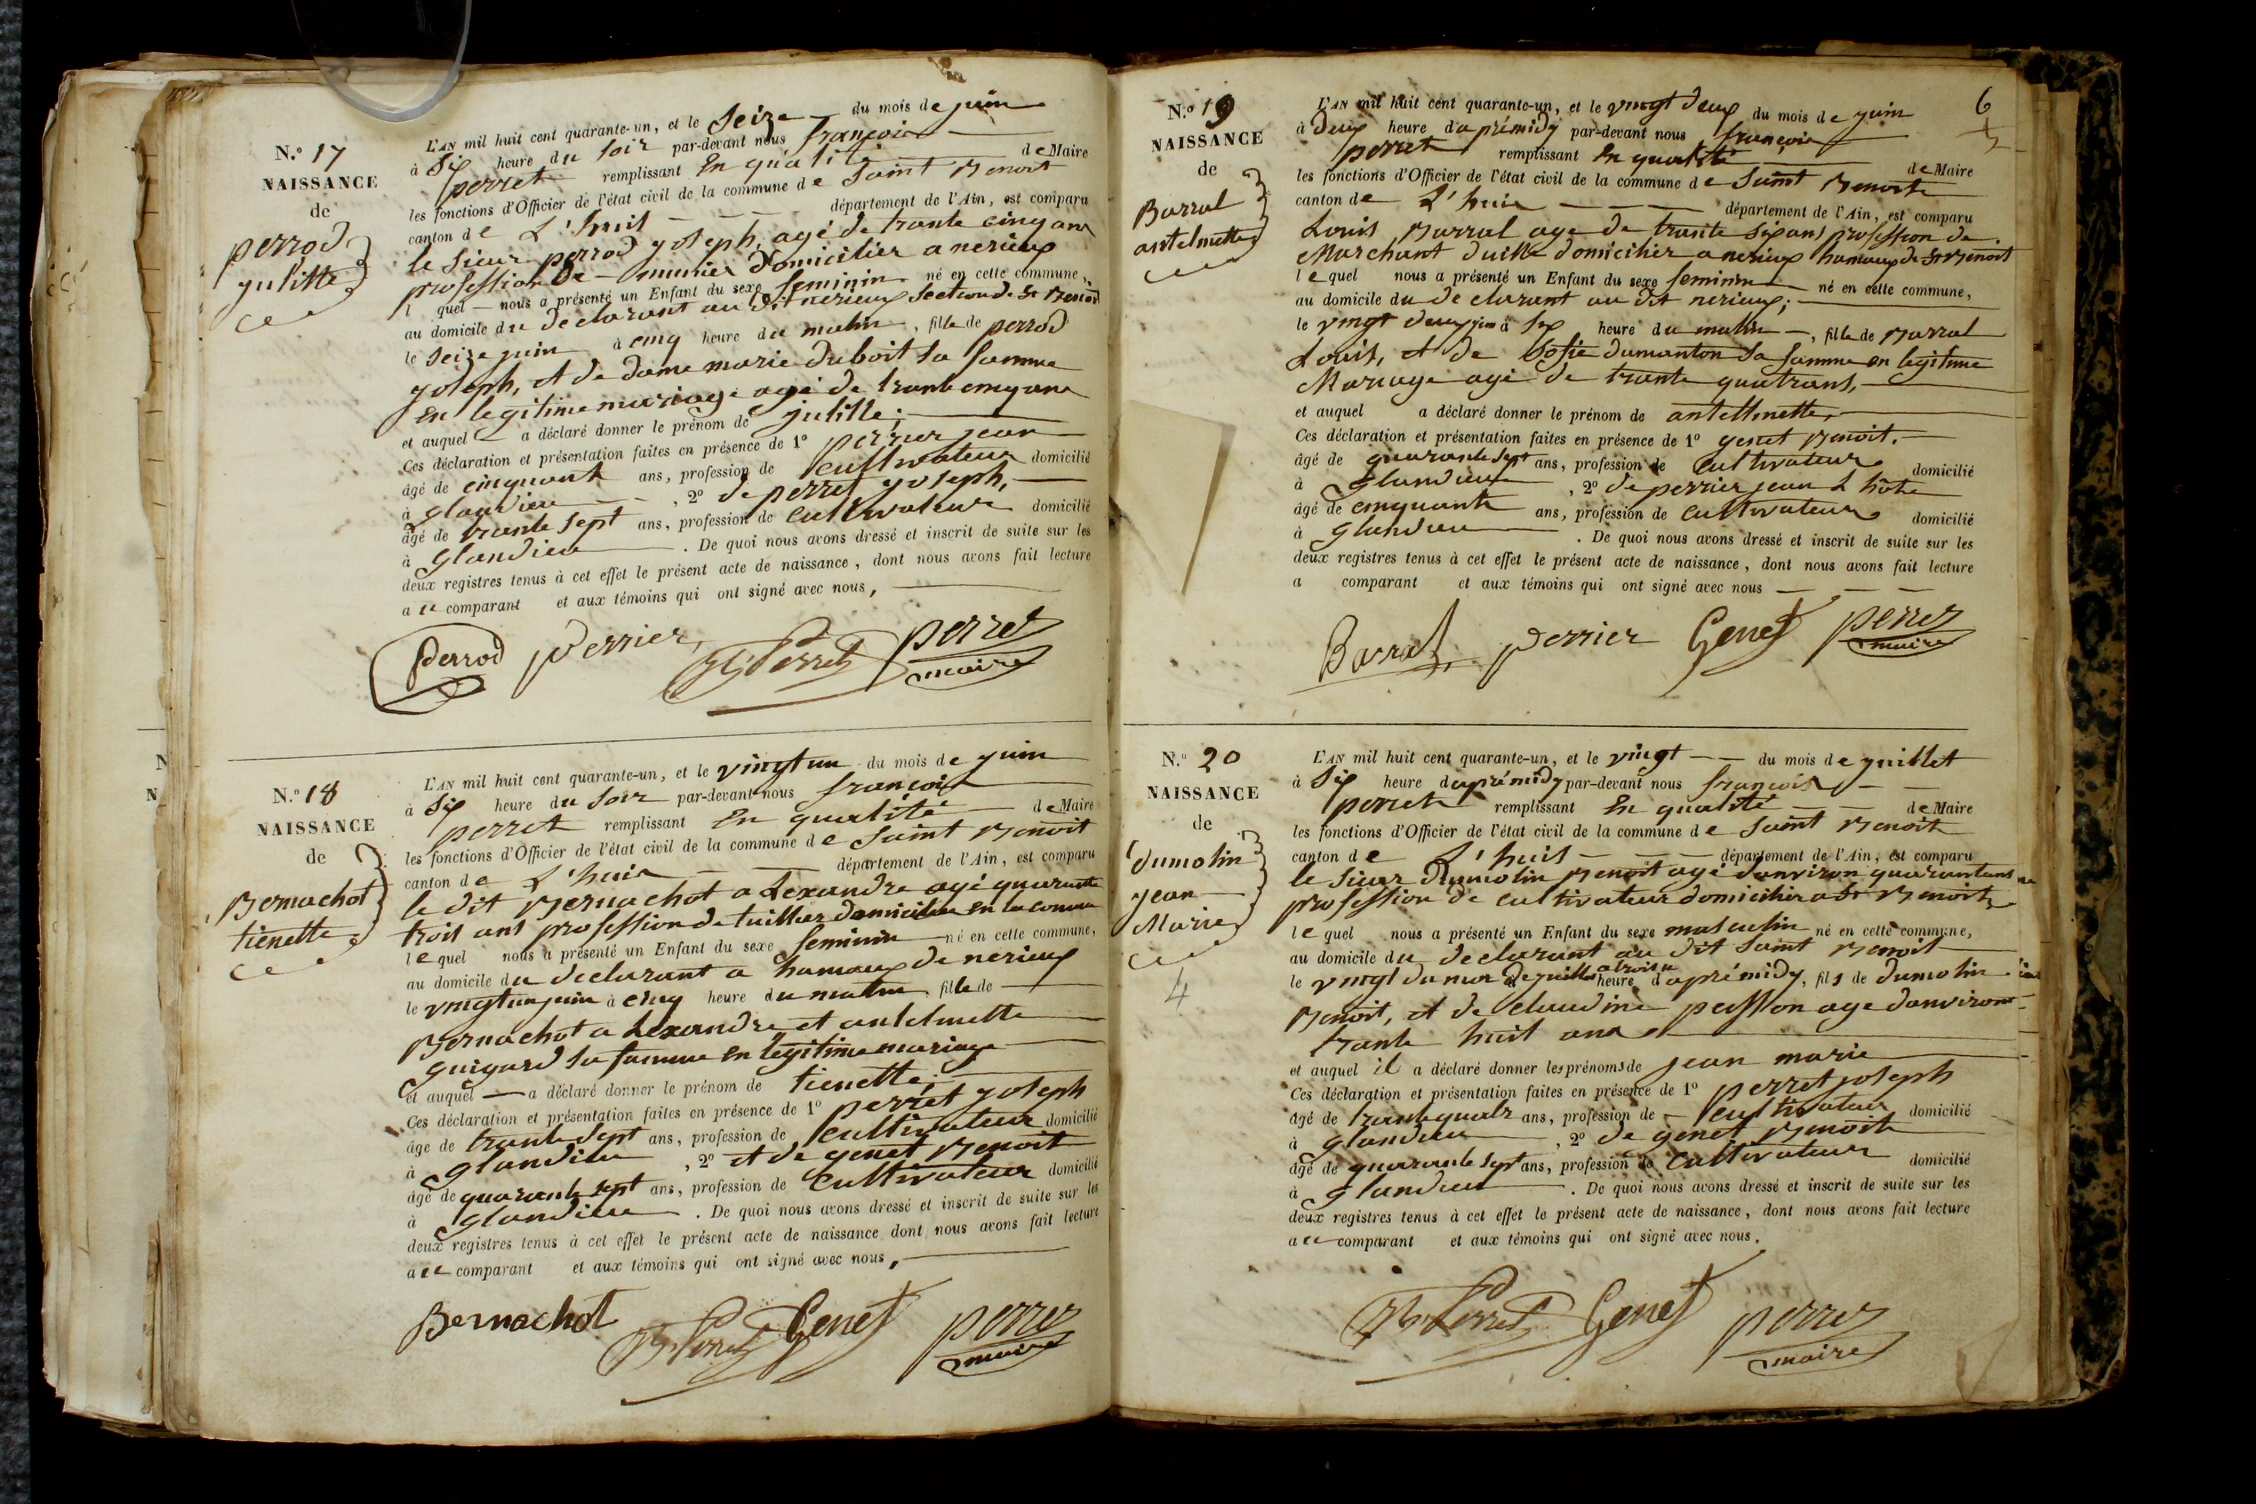 N.º 17
NAISSANCE
de
perrod
julitte
L'AN mil huit cent quarante-un, et le seize du mois de juin
à Six heure du soir par-devant nous françois
perret remplissant En qualité de Maire
les fonctions d'Officier de l'état civil de la commune de saint Benoit
canton de L'huis département de l'Ain, est comparu
le sieur perrod joseph, agé de trante cinq ans
profession De munier Domicilier a nerieux
l quel nous a présenté un Enfant du sexe feminin né en cette commune,
au domicile du declarant au dit nerieux section de St Benoit
le seize juin à cinq heure du matin, fille de perrod
joseph, et de dame marie duboit sa famme
En legitime mariage agé de trante cinq ans
et auquel a déclaré donner le prénom de julitte;
Ces déclaration et présentation faites en présence de 1º perrier jean
âgé de cinquante ans, profession de cultivateur domicilié
à glandieu, 2º de perret joseph,
âgé de trante sept ans, profession de cultivateur domicilié
à glandieu. De quoi nous avons dressé et inscrit de suite sur les
deux registres tenus à cet effet le présent acte de naissance, dont nous avons fait lecture
a ce comparant et aux témoins qui ont signé avec nous,
Perrod perrier, Perret perret
maire
N.º 18
NAISSANCE
de
Bernachot
tienette
L'AN mil huit cent quarante-un, et le vingt un du mois de juin
à Six heure du soir par-devant nous françois
perret remplissant En qualité de Maire
les fonctions d'Officier de l'état civil de la commune de saint Benoit
canton de L'huis département de l'Ain, est comparu
le dit Bernachot alexandre agé quarante
trois ans profession de tuillier domicilier en la commune
lequel nous a présenté un Enfant du sexe feminin né en cette commune,
au domicile du declarant a hamaux de nerieux
le vingt un juin à cinq heure du matin, fille de
Bernachot alexandre et antelmette
guigard sa famme en legitime mariage
et auquel a déclaré donner le prénom de tienette;
Ces déclaration et présentation faites en présence de 1º perret joseph
âgé de trante sept ans, profession de cultivateur domicilié
à glandieu, 2º et de genet Benoit
âgé de quarante sept ans, profession de cultivateur domicilié
à glandieu. De quoi nous avons dressé et inscrit de suite sur les
deux registres tenus à cet effet le présent acte de naissance dont nous avons fait lecture
a ce comparant et aux témoins qui ont signé avec nous,
Bernachot Perret Genet perret
maire
6
N.º 19
NAISSANCE
de
Barral
antelmette
L'AN mil huit cent quarante-un, et le vingt deux du mois de juin
à deux heure d'aprémidy par-devant nous françois
perret remplissant En qualité de Maire
les fonctions d'Officier de l'état civil de la commune de saint Benoit
canton de L'huis département de l'Ain, est comparu
Louis Barral age de trante six ans profession de
Marchant duille domicilier a nerieux hamaux de St Benoit
lequel nous a présenté un Enfant du sexe feminin né en cette commune,
au domicile du declarant au dit nerieux;
le vingt deux juin à six heure du matin, fille de Barral
Louis, et de Sofie dumanton sa famme en legitime
Mariage agé de trante quatrans,
et auquel a déclaré donner le prénom de antelmette,
Ces déclaration et présentation faites en présence de 1º genet Benoit,
âgé de quarante sept ans, profession de cultivateur domicilié
à glandieu, 2º de perrier jean L'hôte
âgé de cinquante ans, profession de cultivateur domicilié
à glandieu. De quoi nous avons dressé et inscrit de suite sur les
deux registres tenus à cet effet le présent acte de naissance, dont nous avons fait lecture
a comparant et aux témoins qui ont signé avec nous
Barral perrier Genet perret
maire
N.º 20
NAISSANCE
de
dumolin
jean
Marie
4
L'AN mil huit cent quarante-un, et le vingt du mois de juillet
à Six heure d'aprémidy par-devant nous françois
perret remplissant En qualité de Maire
les fonctions d'Officier de l'état civil de la commune de saint Benoit
canton de L'huis département de l'Ain, est comparu
le sieur Dumolin Benoit agé danviron quarantans
profession de cultivateur domicilier a St Benoit
lequel nous a présenté un Enfant du sexe masculin né en cette commune,
au domicile du declarant au dit saint Benoit
le vingt du mois de juillet a trois heure d'aprémidy, fils de dumolin
Benoit, et de claudine peysson age danviron
trante huit ans
et auquel il a déclaré donner les prénoms de jean marie
Ces déclaration et présentation faites en présence de 1º perret joseph
âgé de trante quatr ans, profession de cultivateur domicilié
à glandieu, 2º de genet Benoit
âgé de quarante sept ans, profession de cultivateur domicilié
à glandieu. De quoi nous avons dressé et inscrit de suite sur les
deux registres tenus à cet effet le présent acte de naissance, dont nous avons fait lecture
a ce comparant et aux témoins qui ont signé avec nous.
Perret Genet perret
maire